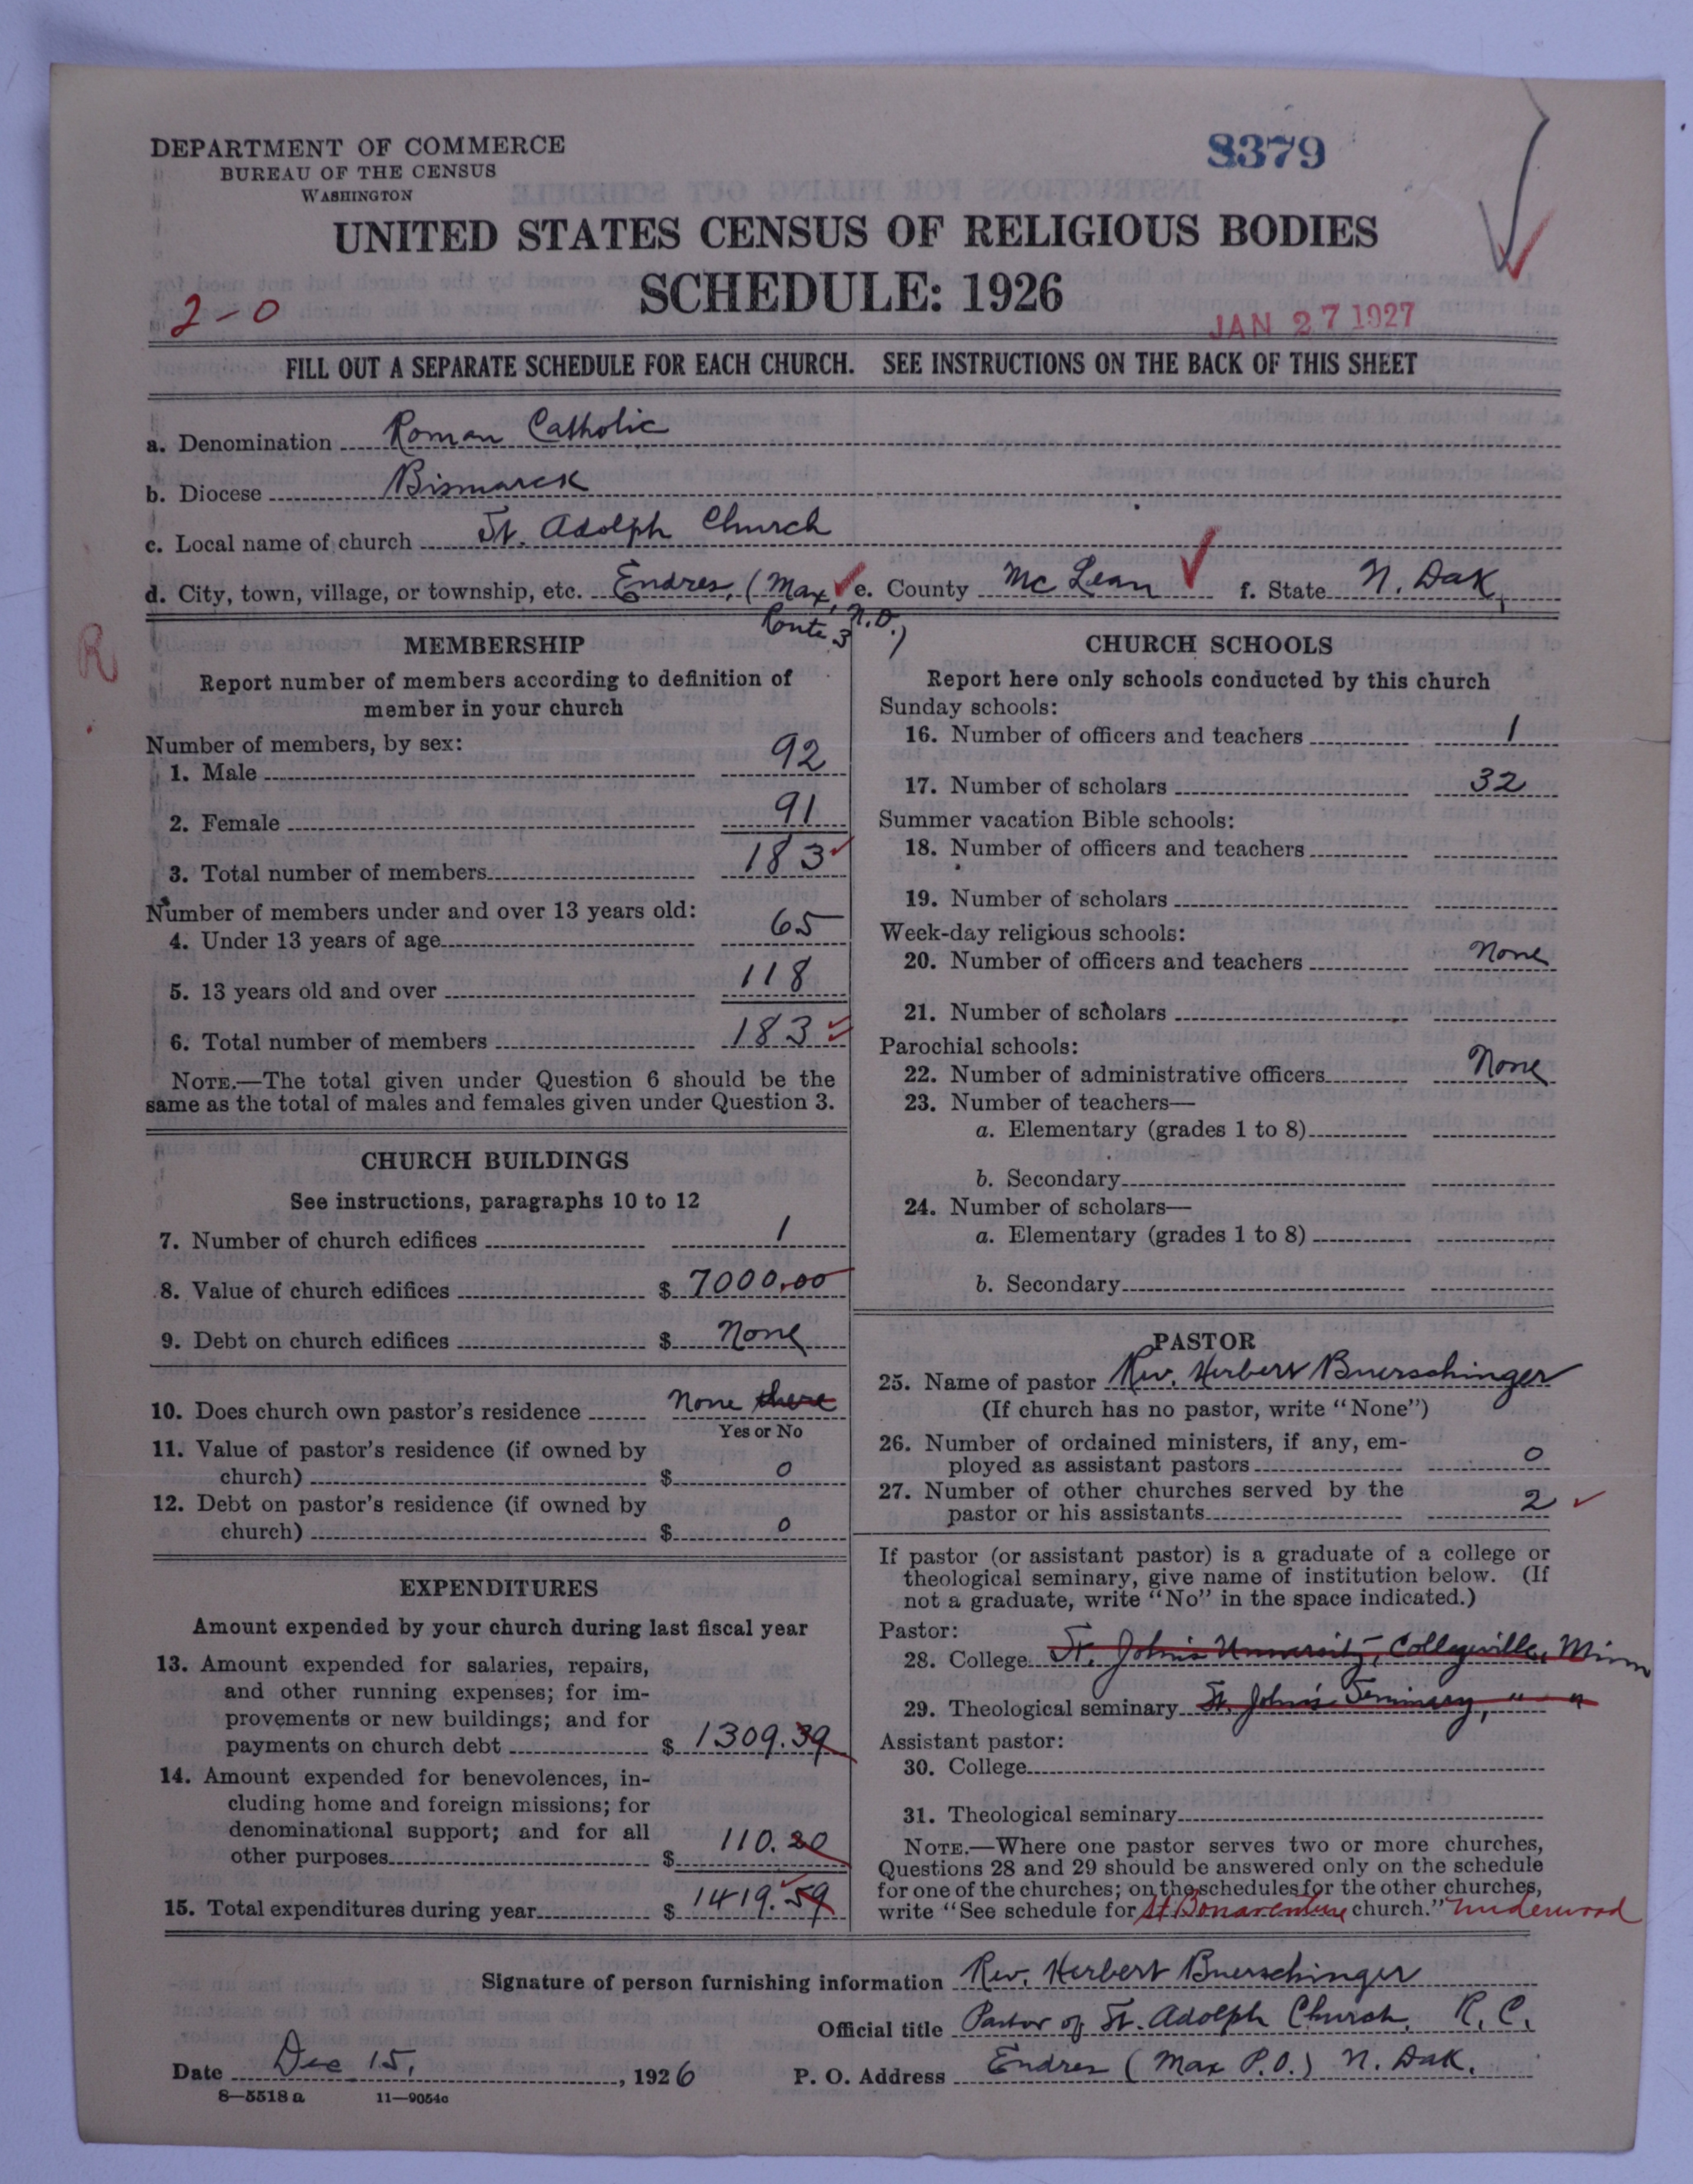 DEPARTMENT OF COMMERCE
BUREAU OF THE CENSUS
WASHINGTON
8379
UNITED STATES CENSUS OF RELIGIOUS BODIES
SCHEDULE: 1926
2-0
JAN 27 1927
FILL OUT A SEPARATE SCHEDULE FOR EACH CHURCH. SEE INSTRUCTIONS ON THE BACK OF THIS SHEET
a. Denomination Roman Catholic
b. Diocese Bismarck
c. Local name of church St. Adolph Church
d. City, town, village, or township, etc. Endres, (Max, N.D. Route 3) e. County Mc Lean f. State N. Dak.
R
MEMBERSHIP
Report number of members according to definition of
member in your church
Number of members, by sex:
1. Male 92
2. Female 91
3. Total number of members 183
Number of members under and over 13 years old:
4. Under 13 years of age 65
5. 13 years old and over 118
6. Total number of members 183
NOTE.—The total given under Question 6 should be the
same as the total of males and females given under Question 3.
CHURCH BUILDINGS
See instructions, paragraphs 10 to 12
7. Number of church edifices 1
8. Value of church edifices $ 7000.00
9. Debt on church edifices $ None
10. Does church own pastor's residence None there
Yes or No
11. Value of pastor's residence (if owned by
church) $ 0
12. Debt on pastor's residence (if owned by
church) $ 0
EXPENDITURES
Amount expended by your church during last fiscal year
13. Amount expended for salaries, repairs,
and other running expenses; for im-
provements or new buildings; and for
payments on church debt $ 1309.39
14. Amount expended for benevolences, in-
cluding home and foreign missions; for
denominational support; and for all
other purposes $ 110.20
15. Total expenditures during year $ 1419.59
CHURCH SCHOOLS
Report here only schools conducted by this church
Sunday schools:
16. Number of officers and teachers 1
17. Number of scholars 32
Summer vacation Bible schools:
18. Number of officers and teachers
19. Number of scholars
Week-day religious schools:
20. Number of officers and teachers None
21. Number of scholars
Parochial schools:
22. Number of administrative officers None
23. Number of teachers—
a. Elementary (grades 1 to 8)
b. Secondary
24. Number of scholars—
a. Elementary (grades 1 to 8)
b. Secondary
PASTOR
25. Name of pastor Rev. Herbert Buerschinger
(If church has no pastor, write "None")
26. Number of ordained ministers, if any, em-
ployed as assistant pastors 0
27. Number of other churches served by the
pastor or his assistants 2
If pastor (or assistant pastor) is a graduate of a college or
theological seminary, give name of institution below. (If
not a graduate, write "No" in the space indicated.)
Pastor:
28. College St. John's University, Collegeville, Minn
29. Theological seminary St. John's Seminary, " "
Assistant pastor:
30. College
31. Theological seminary
NOTE.—Where one pastor serves two or more churches,
Questions 28 and 29 should be answered only on the schedule
for one of the churches; on the schedules for the other churches,
write "See schedule for St Bonaventure church." Underwood
Signature of person furnishing information Rev. Herbert Buerschinger
Official title Pastor of St. Adolph Church. R.C.
Date Dec 15, 1926 P. O. Address Endres (Max P.O.) N. Dak.
8—5518 a 11—9054c